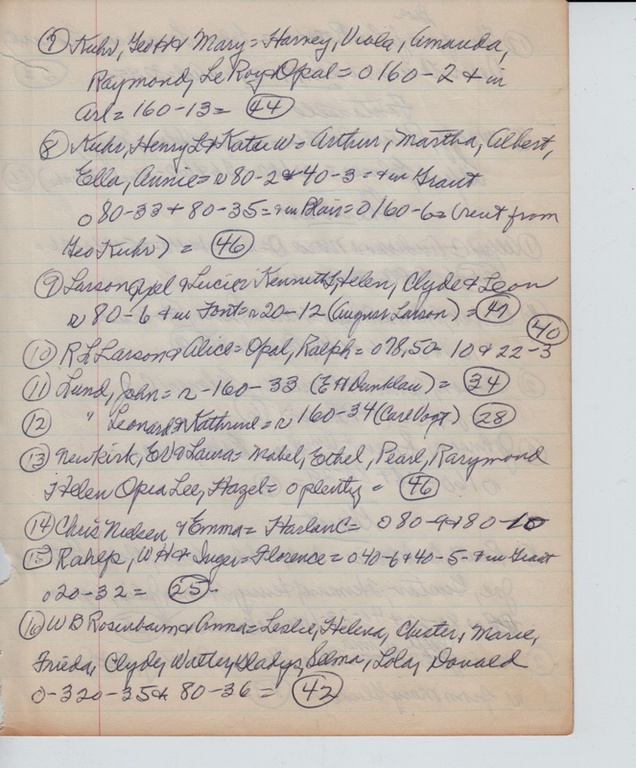 (7) Kuhr, Geo H & Mary = Harvey, Viola, Amanda,
Raymond, LeRoy & Opal = O 160-2 & in
Arl = 160-13 = (44)
(8) Kuhr, Henry L & Katie W = Arthur, Martha, Albert,
Ella, Annie = 80-2 & 40-3 = & in Grant
O 80-33 + 80-35 = & in Blair = O 160-6 = (rent from
Geo Kuhr) = (46)
(9) Larson, & Lucie = Kenneth, Helen, Clyde & Leon
r 80-6 & in Font = r 20-12 (August Larson) = (47)
(10) R L Larson & Alice = Opal, Ralph = O 78,50- 10 & 22-3 (40)
(11) Lund, John = r-160-33 (E H Dunklau) = (34)
(12) " Leonard & Kathrine = r 160-34 (Carl Vogt) (28)
(13) Newkirk, EV & Laura = Mabel, Ethel, Pearl, Rarymond
Helen Lee, Hazel = O plenty = (46)
(14) Chris Nielsen & Emma = Harlan C = O 80-9 & 80-10
(15) , W H & Inger = Florence = O 40-6 & 40-5- & in Grant
O 20-32 = (25)-
(16) W B Rosenbaum & Anna = Leslie, Helena, Chester, Marie,
Frieda, Clyde, Walter, Gladys, Selma, Lola, Donald
O-320-35 & 80-36 = (42)